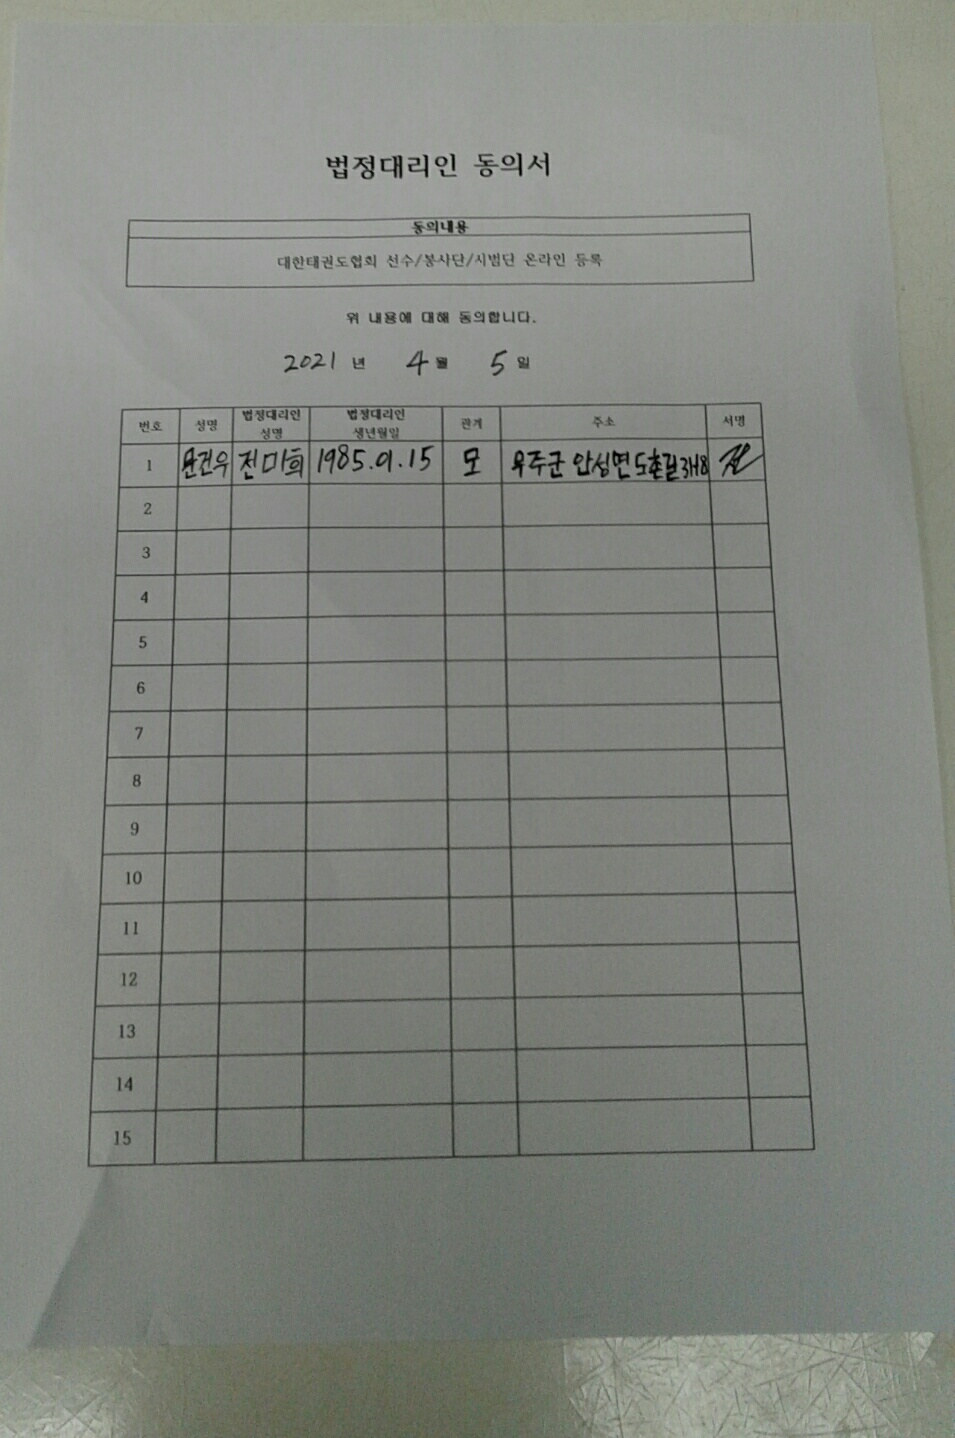 법정대리인 동의서
동의내용
대한태권도협회 선수/봉사단/시범단 온라인 등록
위 내용에 대해 동의합니다.
2021 년 4 월 5 일
번호 성명 법정대리인 성명 법정대리인 생년월일 관계 주소 서명
1 문건우 전미희 1985.01.15 모 무주군 안성면 도촌길
2
3
4
5
6
7
8
9
10
11
12
13
14
15